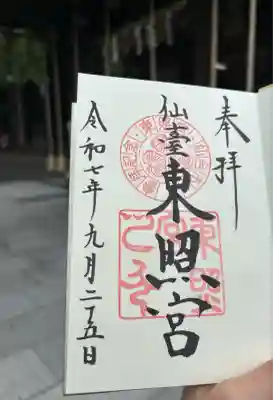 奉拝
仙臺東照宮
令和七年九月二十五日